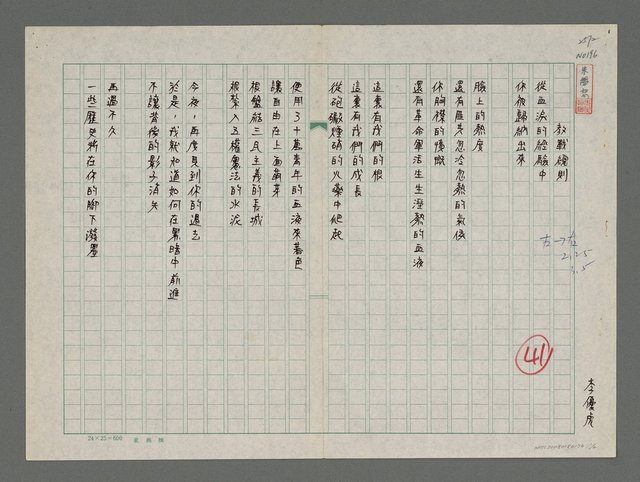 教戰總則
從血淚的經驗中
你被歸納出來
臉上的熱度
還有雁氏忽冷忽熱的氣候
你胸襟的慷慨
還有革命軍活生生溼熱的血液
這裏有我們的根
這裏有我們的成長
從砲徽煙硝的火藥中爬起
使用三十萬青年的血液來着色
讓自由在上面萌芽
根盤結三民主義的長城
根紮入五權憲法的水泥
今夜，再度見到你的過去
於是，我就知道如何在黑暗中前進
不讓背後的影子消失
再過不久
一些歷史將在你的腳下潑墨
李優虎
41
NO196
24×25=600